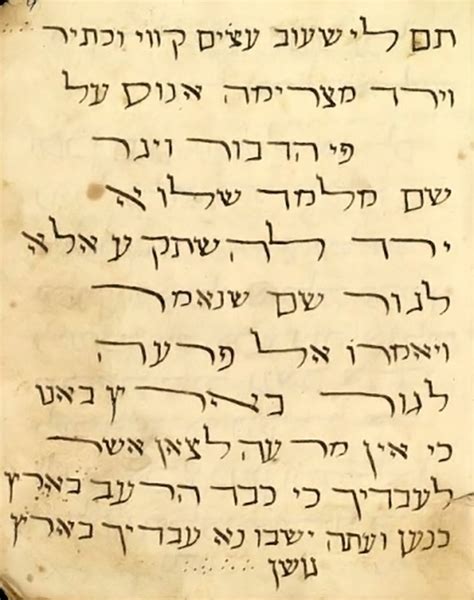 תם לי שעוב עצים קווי וכתיר
וירד מצרימה אנוס על
פי הדבור ויגר
שם מלמד שלוא
ירד להשתקע אלא
לגור שם שנאמר
ויאמרו אל פרעה
לגור בארץ באנו
כי אין מרעה לצאן אשר
לעבדיך כי כבד הרעב בארץ
כנען ועתה ישבו נא עבדיך בארץ
גושן